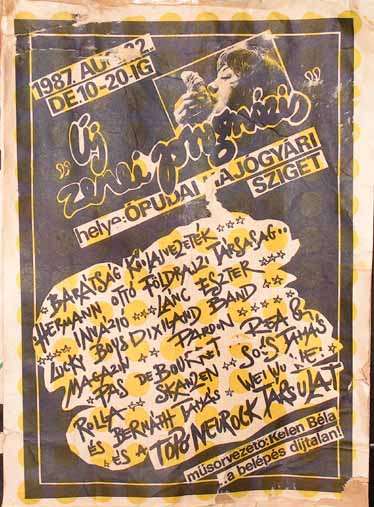 1987. AUG. 22.
DE.10-20-IG
„Új
zenei prognózis”
helye: ÓBUDAI HAJÓGYÁRI
SZIGET
BARÁTSÁG KÜLÖNVEZETÉK
HERMANN OTTÓ FÖLDRAJZI TÁRSASÁG..
INVÁZIÓ LÁNC ESZTER
LUCKY BOYS DIXILAND BAND
MAGAZIN PARDON REA &
PAS DE BOURRET SOÓS TAMÁS
ROLLA SKANZEN WEI WU IE
ÉS BERNÁTH TAMÁS
ÉS A TOPO NEUROCK TÁRSULAT
műsorvezető: Kelen Béla
.a belépés díjtalan!